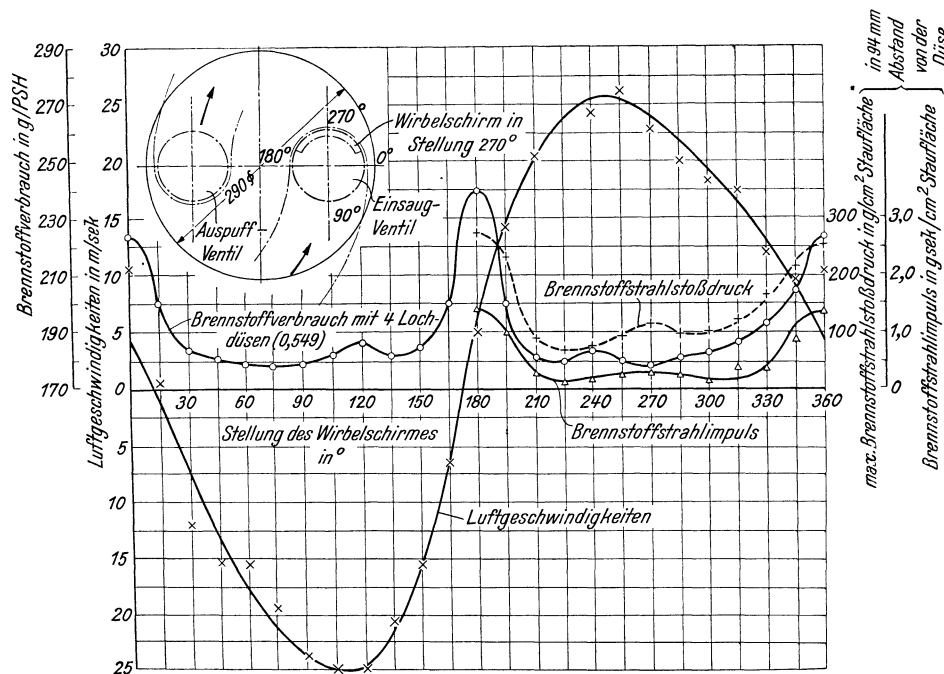 290
270
250
230
210
190
170
Brennstoffverbrauch in g/PSH
30
25
20
15
10
5
0
5
10
15
20
25
Luftgeschwindigkeiten in m/sek
270°
180°
0°
90°
290 ϕ
Wirbelschirm in
Stellung 270°
Einsaug-
Ventil
Auspuff
Ventil
Brennstoffverbrauch mit 4 Loch-
düsen (0,549)
Brennstoffstrahlstoßdruck
Brennstoffstrahlimpuls
Luftgeschwindigkeiten
30 60 90 120 150 180 210 240 270 300 330 360
Stellung des Wirbelschirmes
in °
300
200
100
0
max. Brennstoffstrahlstoßdruck in g/cm² Staufläche
3,0
2,0
1,0
0
Brennstoffstrahlimpuls in gsek/cm² Staufläche
in 94 mm
Abstand
von der
Düse